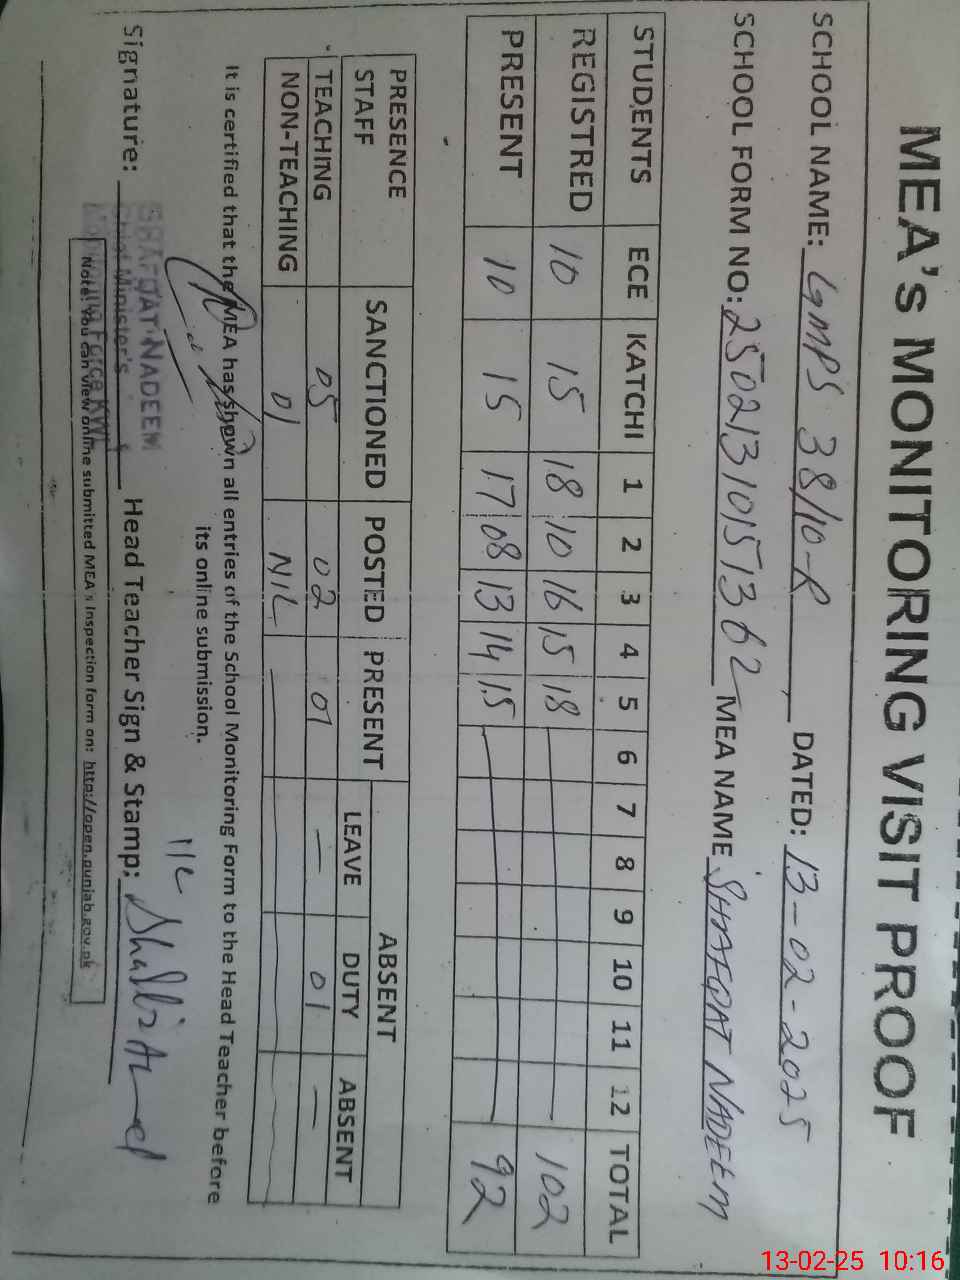 MEA's MONITORING VISIT PROOF
SCHOOL NAME: GMPS 38/10-R, DATED: 13-02-2025
SCHOOL FORM NO: 25021310151362 MEA NAME SHAFQAT NADEEM
STUDENTS ECE KATCHI 1 2 3 4 5 6 7 8 9 10 11 12 TOTAL
REGISTRED 10 15 18 10 16 15 18 102
PRESENT 10 15 17 08 13 14 15 92
PRESENCE STAFF SANCTIONED POSTED PRESENT ABSENT
LEAVE DUTY ABSENT
TEACHING 05 02 01 — 01 —
NON-TEACHING 01 NIL —
It is certified that the MEA has shown all entries of the School Monitoring Form to the Head Teacher before
its online submission.
Signature: Head Teacher Sign & Stamp:
SHAFQAT NADEEM
Chief Minister's
Monitoring Force KWL
Note: You can view online submitted MEA's Inspection form on: http://open.punjab.gov.pk
13-02-25 10:16